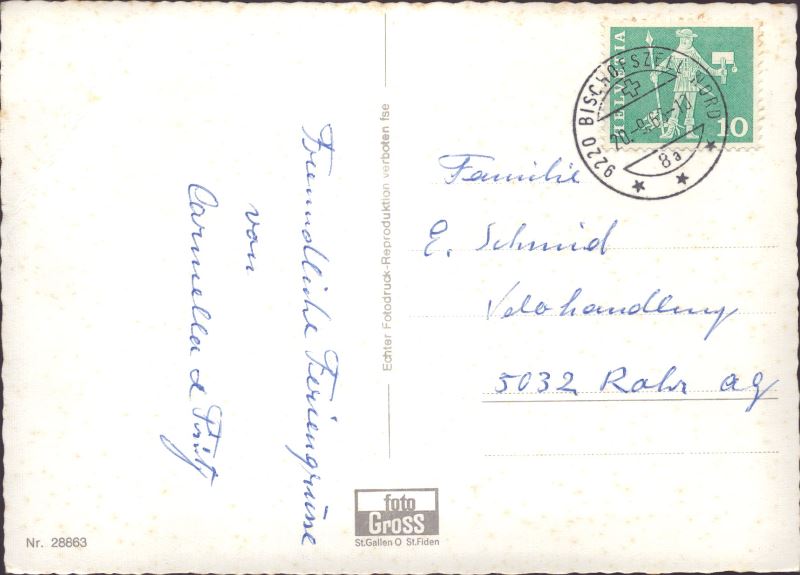 Freundliche Feriengrüsse
von
Carmella & Fritz
Echter Fotodruck-Reproduktion verboten fse
HELVETIA
10
9220 BISCHOFSZELL NORD
20.-9.67-17
8a
Familie
E. Schmid
Velohandlung
5032 Rohr AG
foto
Gross
St.Gallen O St.Fiden
Nr. 28863